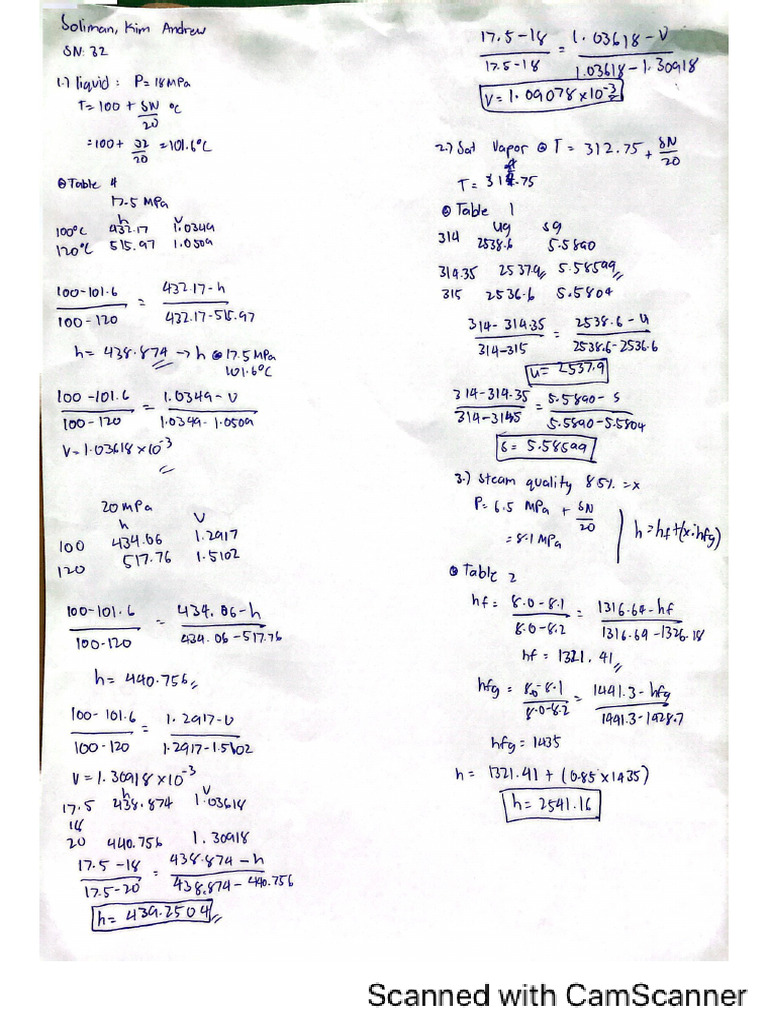 Soliman, Kim Andrew
SN: 32
1.) liquid : P= 18 MPa
T= 100 + SN/20 °C
= 100 + 32/20 = 101.6°C
@ Table 4
17.5 MPa
h v
100°C 432.17 1.0349
120°C 515.97 1.0509
100-101.6 / 100-120 = 432.17-h / 432.17-515.97
h= 438.874 → h @ 17.5 MPa
101.6°C
100-101.6 / 100-120 = 1.0349-v / 1.0349-1.0509
V= 1.03618 x10⁻³
20 mPa
h V
100 434.06 1.2917
120 517.76 1.5102
100-101.6 / 100-120 = 434.06-h / 434.06-517.76
h= 440.756
100-101.6 / 100-120 = 1.2917-v / 1.2917-1.5102
V= 1.30918 x10⁻³
h v
17.5 438.874 1.03618
18
20 440.756 1.30918
17.5-18 / 17.5-20 = 438.874-h / 438.874-440.756
h= 439.2504
17.5-18 / 17.5-18 = 1.03618-V / 1.03618-1.30918
V= 1.09078 x10⁻³
2.) Sat Vapor @ T= 312.75 + SN/20
T= 314.75
@ Table 1
ug sg
314 2538.6 5.5890
314.35 2537.9 5.58599
315 2536.6 5.5804
314-314.35 / 314-315 = 2538.6-u / 2538.6-2536.6
u= 2537.9
314-314.35 / 314-3145 = 5.5890-s / 5.5890-5.5804
s= 5.58599
3.) Steam quality 85% = x
P= 6.5 MPa + SN/20
= 8.1 MPa
h= hf+(x·hfg)
@ Table 2
hf= 8.0-8.1 / 8.0-8.2 = 1316.64-hf / 1316.64-1326.18
hf= 1321.41
hfg= 8.0-8.1 / 8.0-8.2 = 1441.3-hfg / 1441.3-1428.7
hfg= 1435
h= 1321.41 + (0.85 x 1435)
h= 2541.16
Scanned with CamScanner